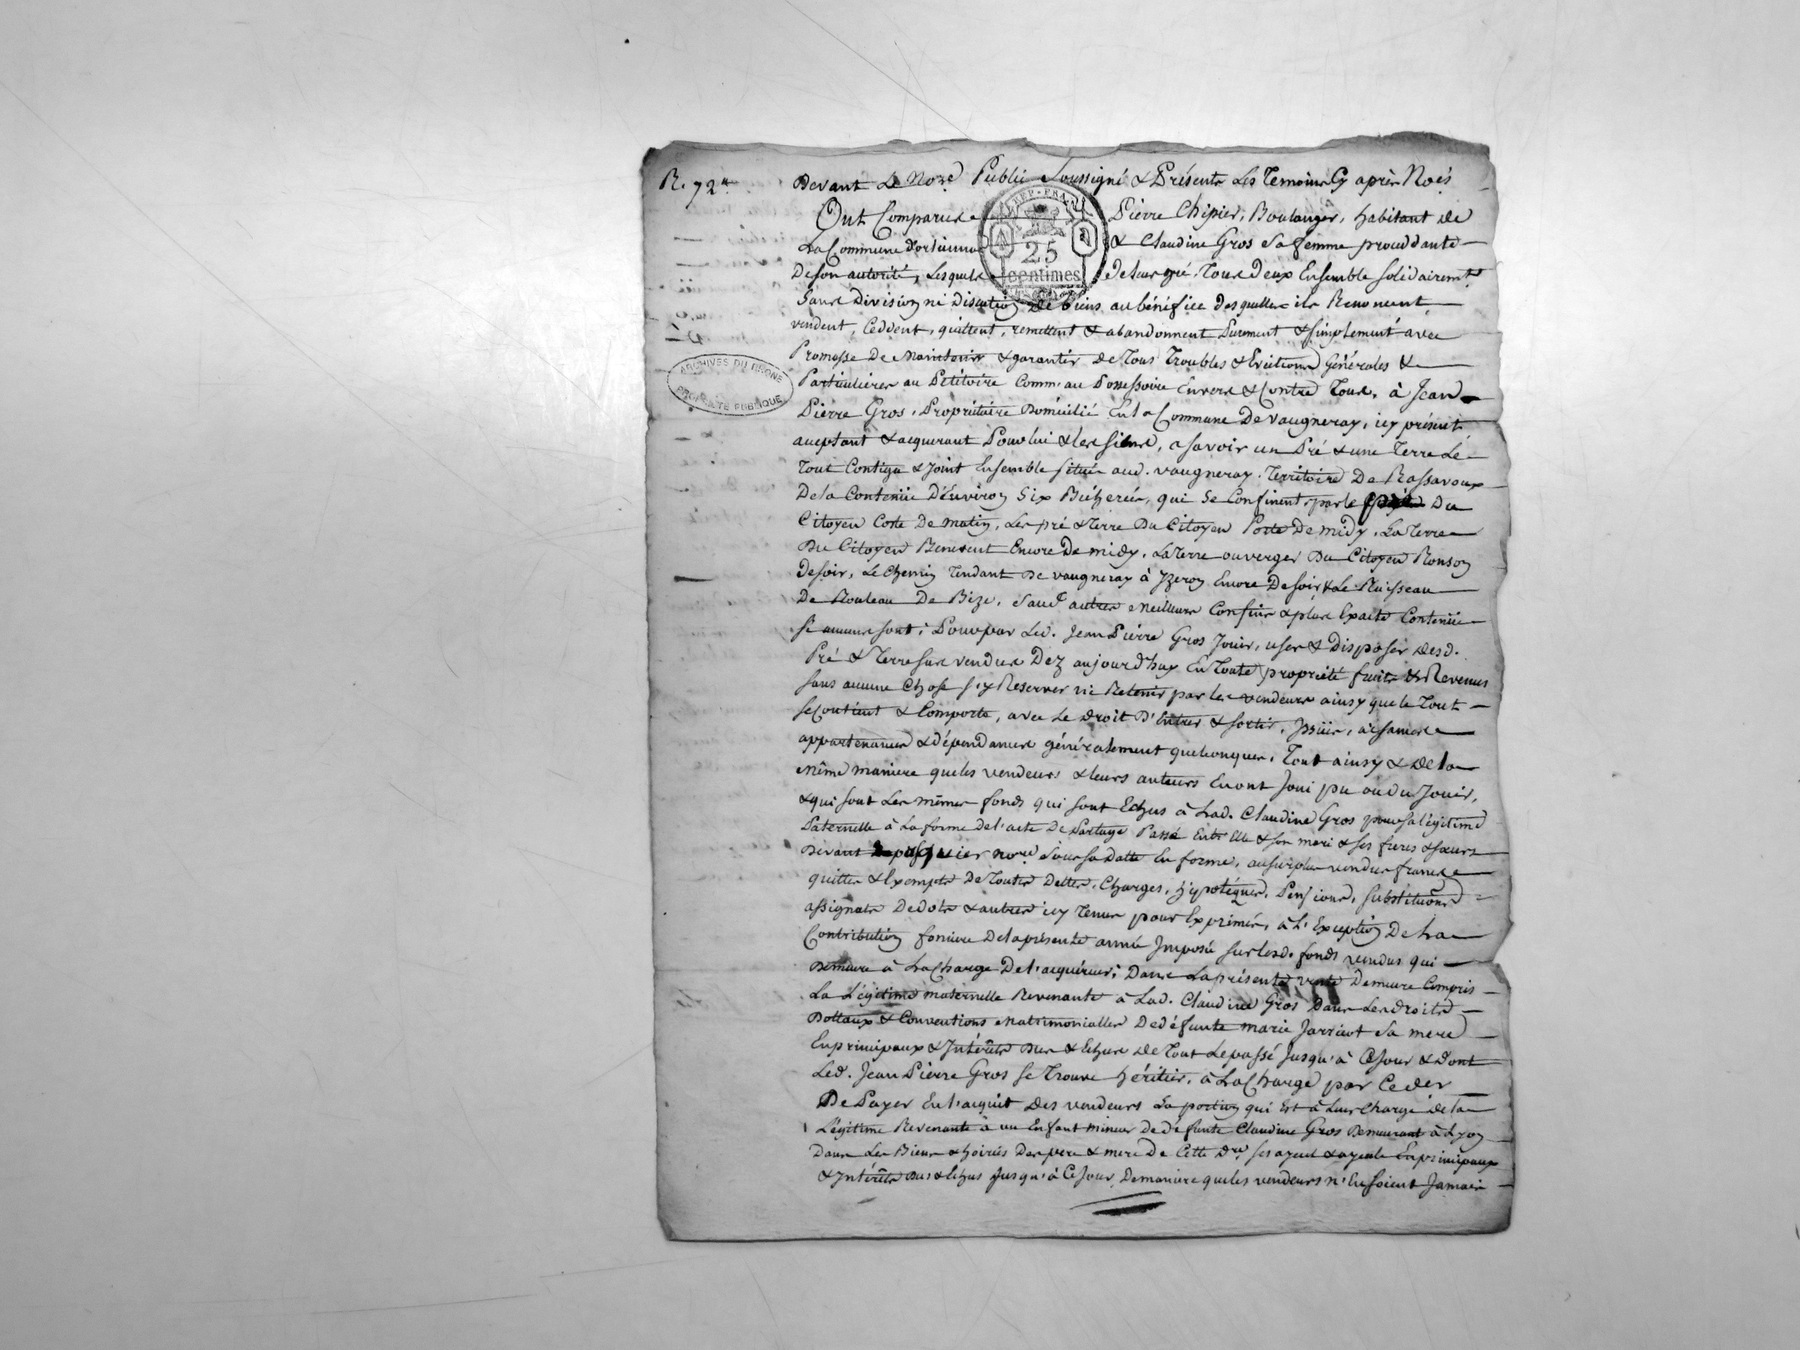 R. 72#
Devant Le No.re Public Soussigné & Présents Les Temoins Cy après No.és
Ont Comparus Pierre Chipier, Boulanger, habitant de
REP. FRA.
25
centimes
La Commune & Claudine Gros sa femme procedante
De son autorité, Lesquels De leur gré, Tous Deux Ensemble solidairem.t
Sans Division ni Discution De biens au bénéfice desquelles ils Renoncent
vendent, Ceddent, quittent, remettent & abandonnent Purement & simplement avec
Promesse De Maintenir & garantir de Tous Troubles & Evictions Générales &
ARCHIVES DU RHONE
PROPRIETE PUBLIQUE
Particulières au Petitoire Comm'au Possessoire Envers & Contre Tous, à Jean
Pierre Gros, Propriétaire Domicilié En la Commune De Vaugneray, icy présent
aceptant & acquerant Pour lui & les siens, a savoir un Pré & une Terre Le
Tout Contigu & Joint Ensemble situés aud. vaugneray, Territoire De Rassavoux
De la Contenüe D'Environ Six Bicherées, qui se Confinent, par le Du
Citoyen Coste De matin, Les pré & Terre Du Citoyen Poste De midy, La Terre
Du Citoyen Benevent Encore De midy, La Terre ou verger Du Citoyen Ronson
De soir, Le Chemin Tendant De vaugneray à Yzeron Encore De soir & Le Ruisseau
De Rouleau De Bize, Sauf autres Meilleurs Confins & plus Exacte Contenüe
si aucuns sont; Pour par Led. Jean Pierre Gros Jouir, user & Disposer desd.
Pré & Terre sus vendus Dez aujourd'huy En Toute propriété fruits & Revenus
sans aucune Chose s'y Reserver ni Retenir par les vendeurs ainsy que le Tout
se Contient & Comporte, avec Le Droit D'Entrer & sortir, Issües, aisances
appartenances & dépendances généralement quelconques, Tout ainsy & de la
même maniere que les vendeurs & leurs auteurs En ont Joui pu ou du Jouir,
& qui sont Les mêmes fonds qui sont Echus à Lad. Claudine Gros pour sa légitime
Paternelle à La forme de l'acte De Partage Passé Entr'Elle & son mari & ses freres & soeurs
Devant no.re sous sa Datte En forme, au surplus vendus francs
quittes & Exempts De Toutes Dettes, Charges, hypotéques, Pensions, Substitutions
assignats De Dots & autres icy Tenus pour Exprimés, à L'Exception De La
Contribution fonciere De la présente année Imposée sur lesd. fonds vendus qui
Demeure à La Charge De l'acquéreur; Dans La présente vente Demeure Compris
La Légitime maternelle Revenante à Lad. Claudine Gros Dans Les droits
Dottaux & Conventions Matrimonialles De défunte marie Jarricot sa mere
En principaux & Intérêts Dus & Echus De Tout Le passé Jusqu'à Ce Jour & Dont
Led. Jean Pierre Gros se Trouve héritier, à La Charge par Ce der
De Payer En l'acquit Des vendeurs La portion qui Est à Leur Charge de la
Légitime Revenante à un Enfant mineur De défunte Claudine Gros Demeurant à Lyon
Dans Les Biens & hoiries Des pere & mere De Cette D.re ses ayeul & ayeule En principaux
& Intérêts Dus & Echus Jusqu'à Ce Jour, De maniere que les vendeurs n'En soient Jamais